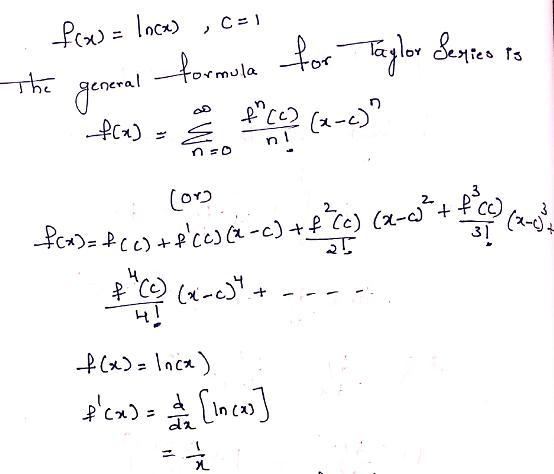 f(x) = ln(x) , c=1
The general formula for Taylor Series is
f(x) = ∞ Σ n=0 fⁿ(c)/n! (x-c)ⁿ
(or)
f(x) = f(c) + f'(c)(x-c) + f²(c)/2! (x-c)² + f³(c)/3! (x-c)³ +
f⁴(c)/4! (x-c)⁴ + - - - - -
f(x) = ln(x)
f'(x) = d/dx [ln(x)]
= 1/x